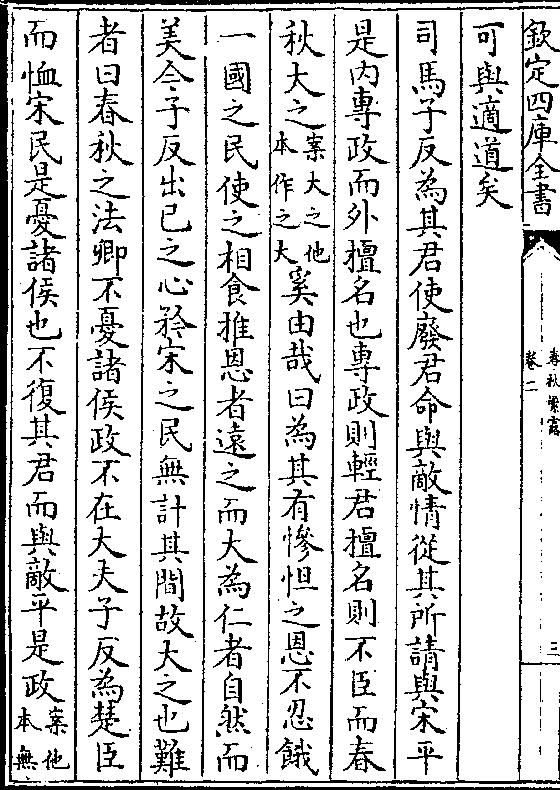 欽定四庫全書
春秋繁露
卷二
三
可與適道矣
司馬子反為其君使廢君命與敵情從其所請與宋平
是内專政而外擅名也專政則輕君擅名則不臣而春
秋大之案大之他本作之大奚由哉曰為其有慘怛之恩不忍餓
一國之民使之相食推恩者遠之而大為仁者自然而
美今子反出已之心矜宋之民無計其閒故大之也難
者曰春秋之法卿不憂諸侯政不在大夫子反為楚臣
而恤宋民是憂諸侯也不復其君而與敵平是政案他本無